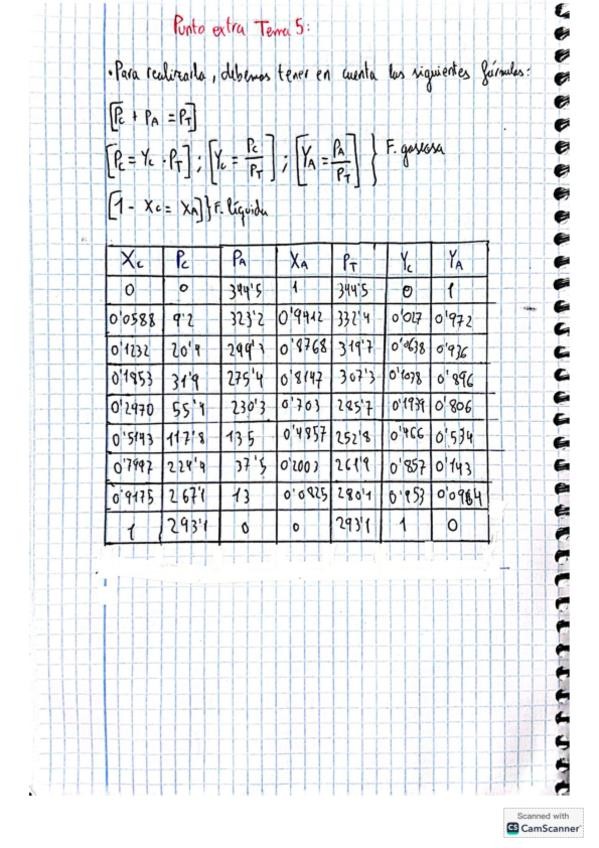 Punto extra Tema 5:
• Para realizarla, debemos tener en cuenta las siguientes fórmulas:
[Pc + PA = PT]
[Pc = Yc · PT] ; [Yc = Pc/PT] ; [YA = PA/PT] } F. gaseosa
[1 - Xc = XA] } F. líquida
Xc Pc PA XA PT Yc YA
0 0 344'5 1 344'5 0 1
0'0588 9'2 323'2 0'9412 332'4 0'027 0'972
0'1232 20'4 299'3 0'8768 319'7 0'0638 0'936
0'1853 31'9 275'4 0'8147 307'3 0'1038 0'896
0'2970 55'4 230'3 0'703 285'7 0'1939 0'806
0'5143 117'8 135 0'4857 252'8 0'466 0'534
0'7997 224'4 37'5 0'2003 261'9 0'857 0'143
0'9175 267'1 13 0'0825 280'1 0'953 0'0464
1 293'1 0 0 293'1 1 0
Scanned with
CS CamScanner